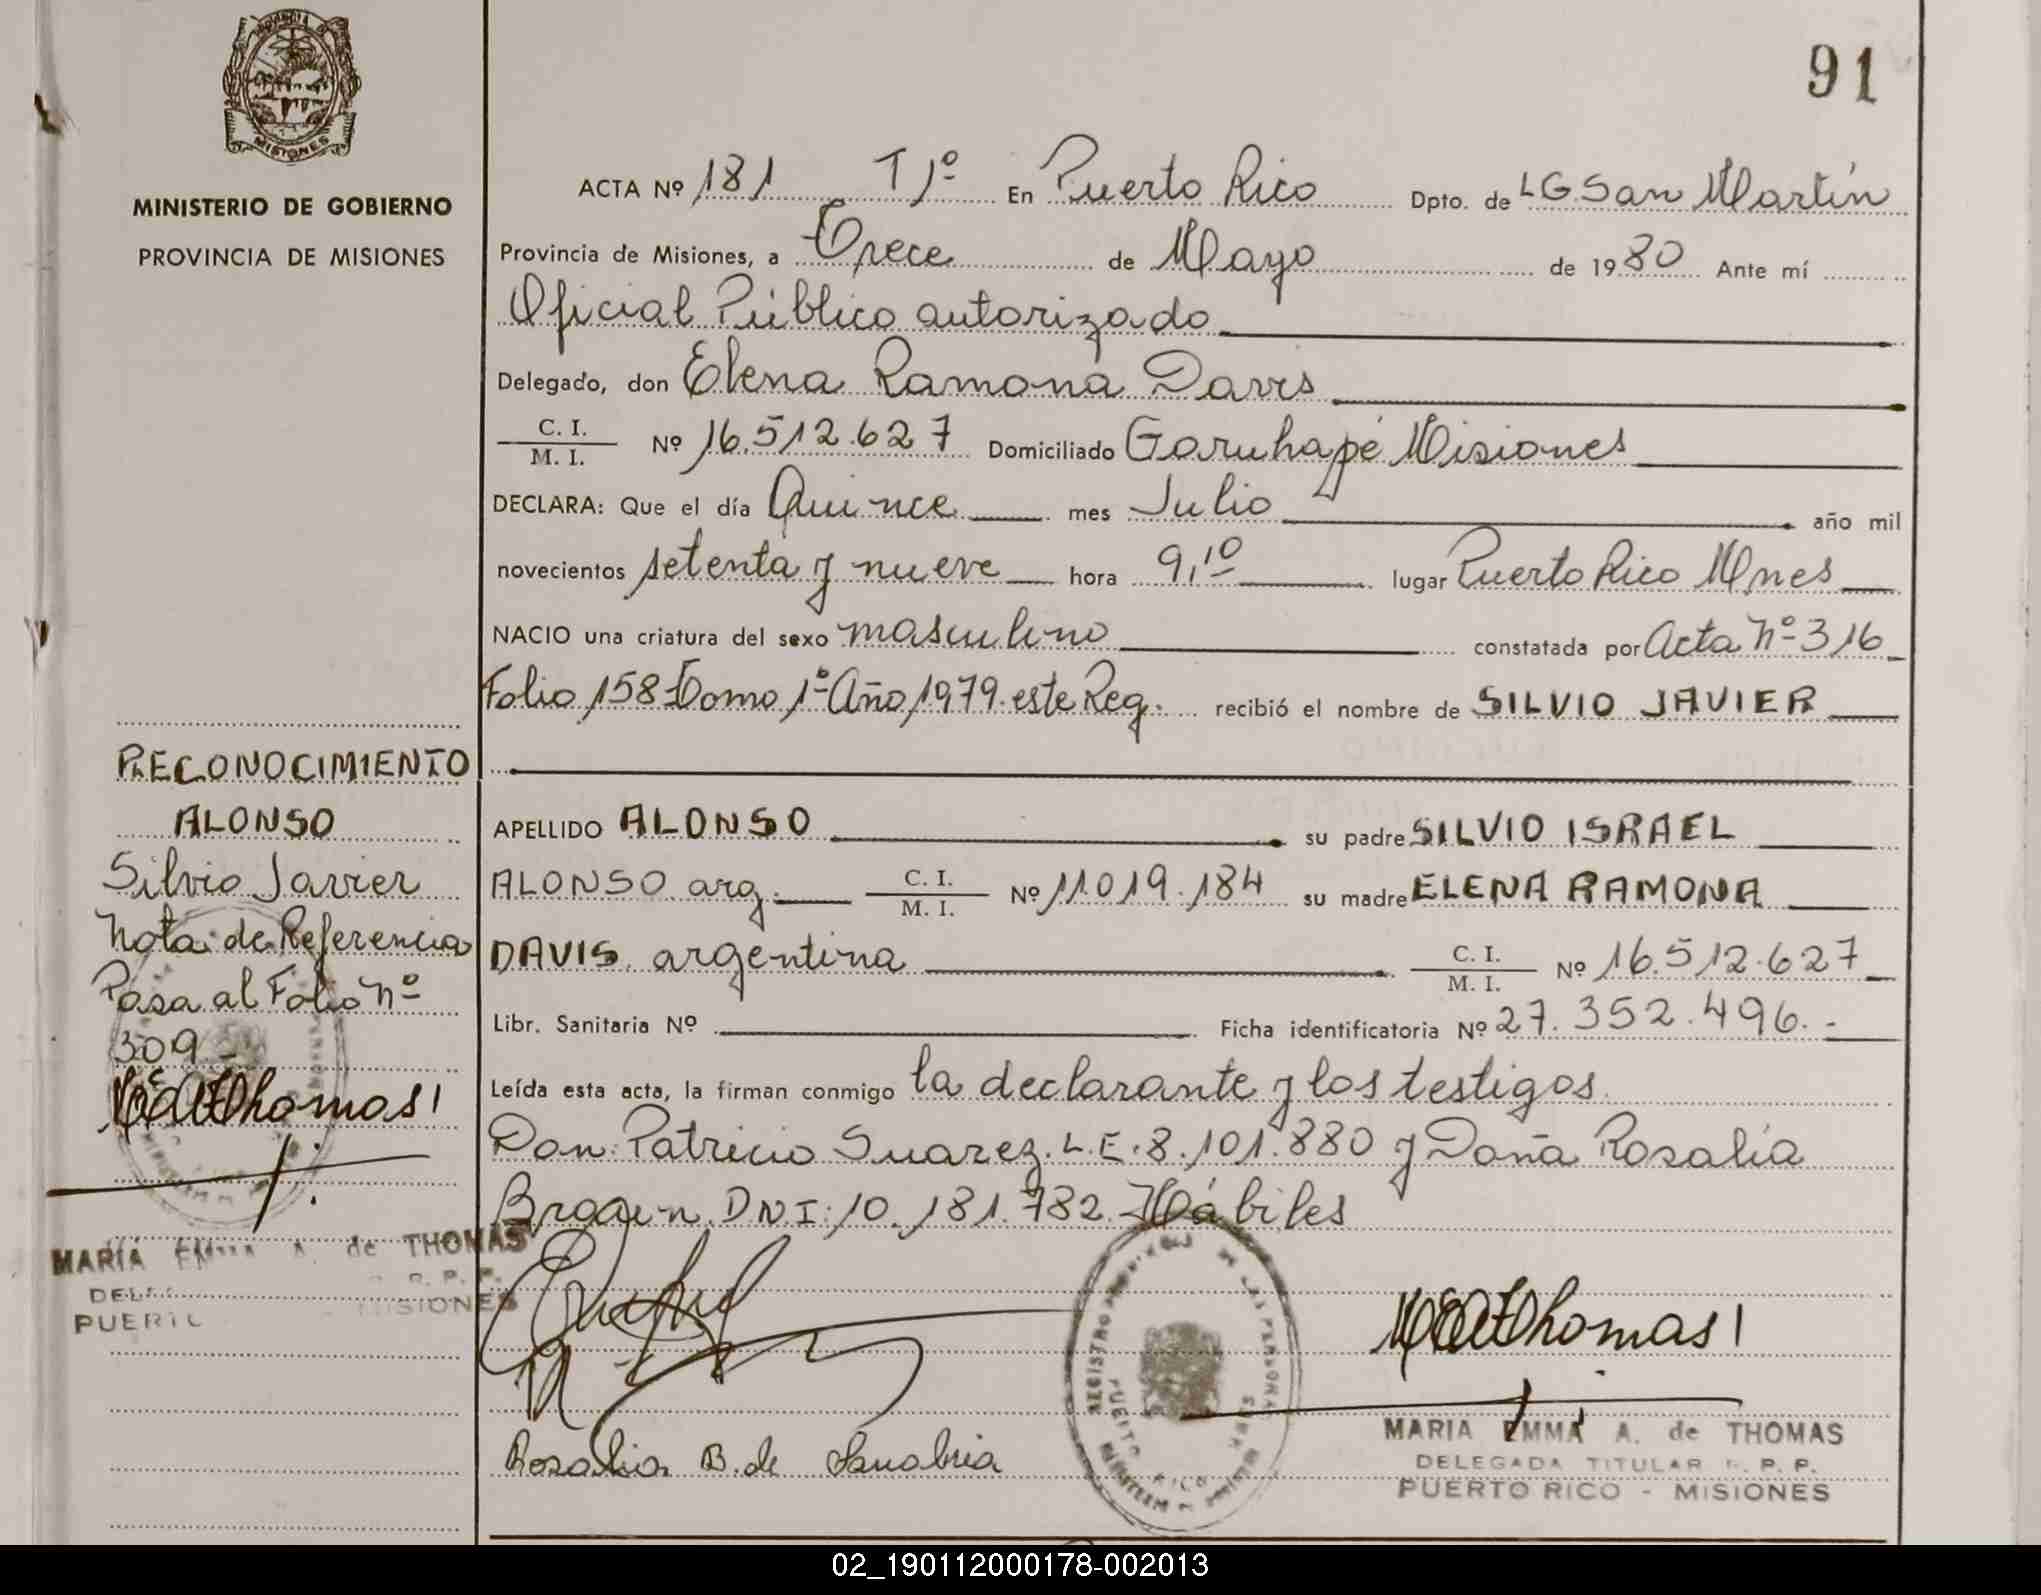 91
MISIONES
MINISTERIO DE GOBIERNO
PROVINCIA DE MISIONES
ACTA Nº 181 T 1º En Puerto Rico Dpto. de L G San Martín
Provincia de Misiones, a Trece de Mayo de 1980 Ante mí
Oficial Público autorizado
Delegado, don Elena Ramona Davis
C. I.
M. I. Nº 16.512.627 Domiciliado Garuhapé Misiones
DECLARA: Que el día Quince mes Julio año mil
novecientos setenta y nueve hora 9,10 lugar Puerto Rico Mnes
NACIO una criatura del sexo masculino constatada por Acta Nº 316
Folio 158 Tomo 1º Año 1979 este Reg. recibió el nombre de SILVIO JAVIER
APELLIDO ALONSO su padre SILVIO ISRAEL
ALONSO arg. C. I. M. I. Nº 11.019.184 su madre ELENA RAMONA
DAVIS argentina C. I. M. I. Nº 16.512.627
Libr. Sanitaria Nº Ficha identificatoria Nº 27.352.496.-
Leída esta acta, la firman conmigo la declarante y los testigos
Don Patricio Suarez. L.E. 8.101.880 y Doña Rosalía
DNI: 10.181.782. Hábiles
Rosalia B. de Sanabria
Thomas
MARIA EMMA A. de THOMAS
DELEGADA TITULAR R. P. P.
PUERTO RICO - MISIONES
RECONOCIMIENTO
ALONSO
Silvio Javier
Nota de Referencia
Pasa al Folio Nº
309-
Thomas
MARIA EMMA A. de THOMAS
R. P. P.
MISIONES
02_190112000178-002013